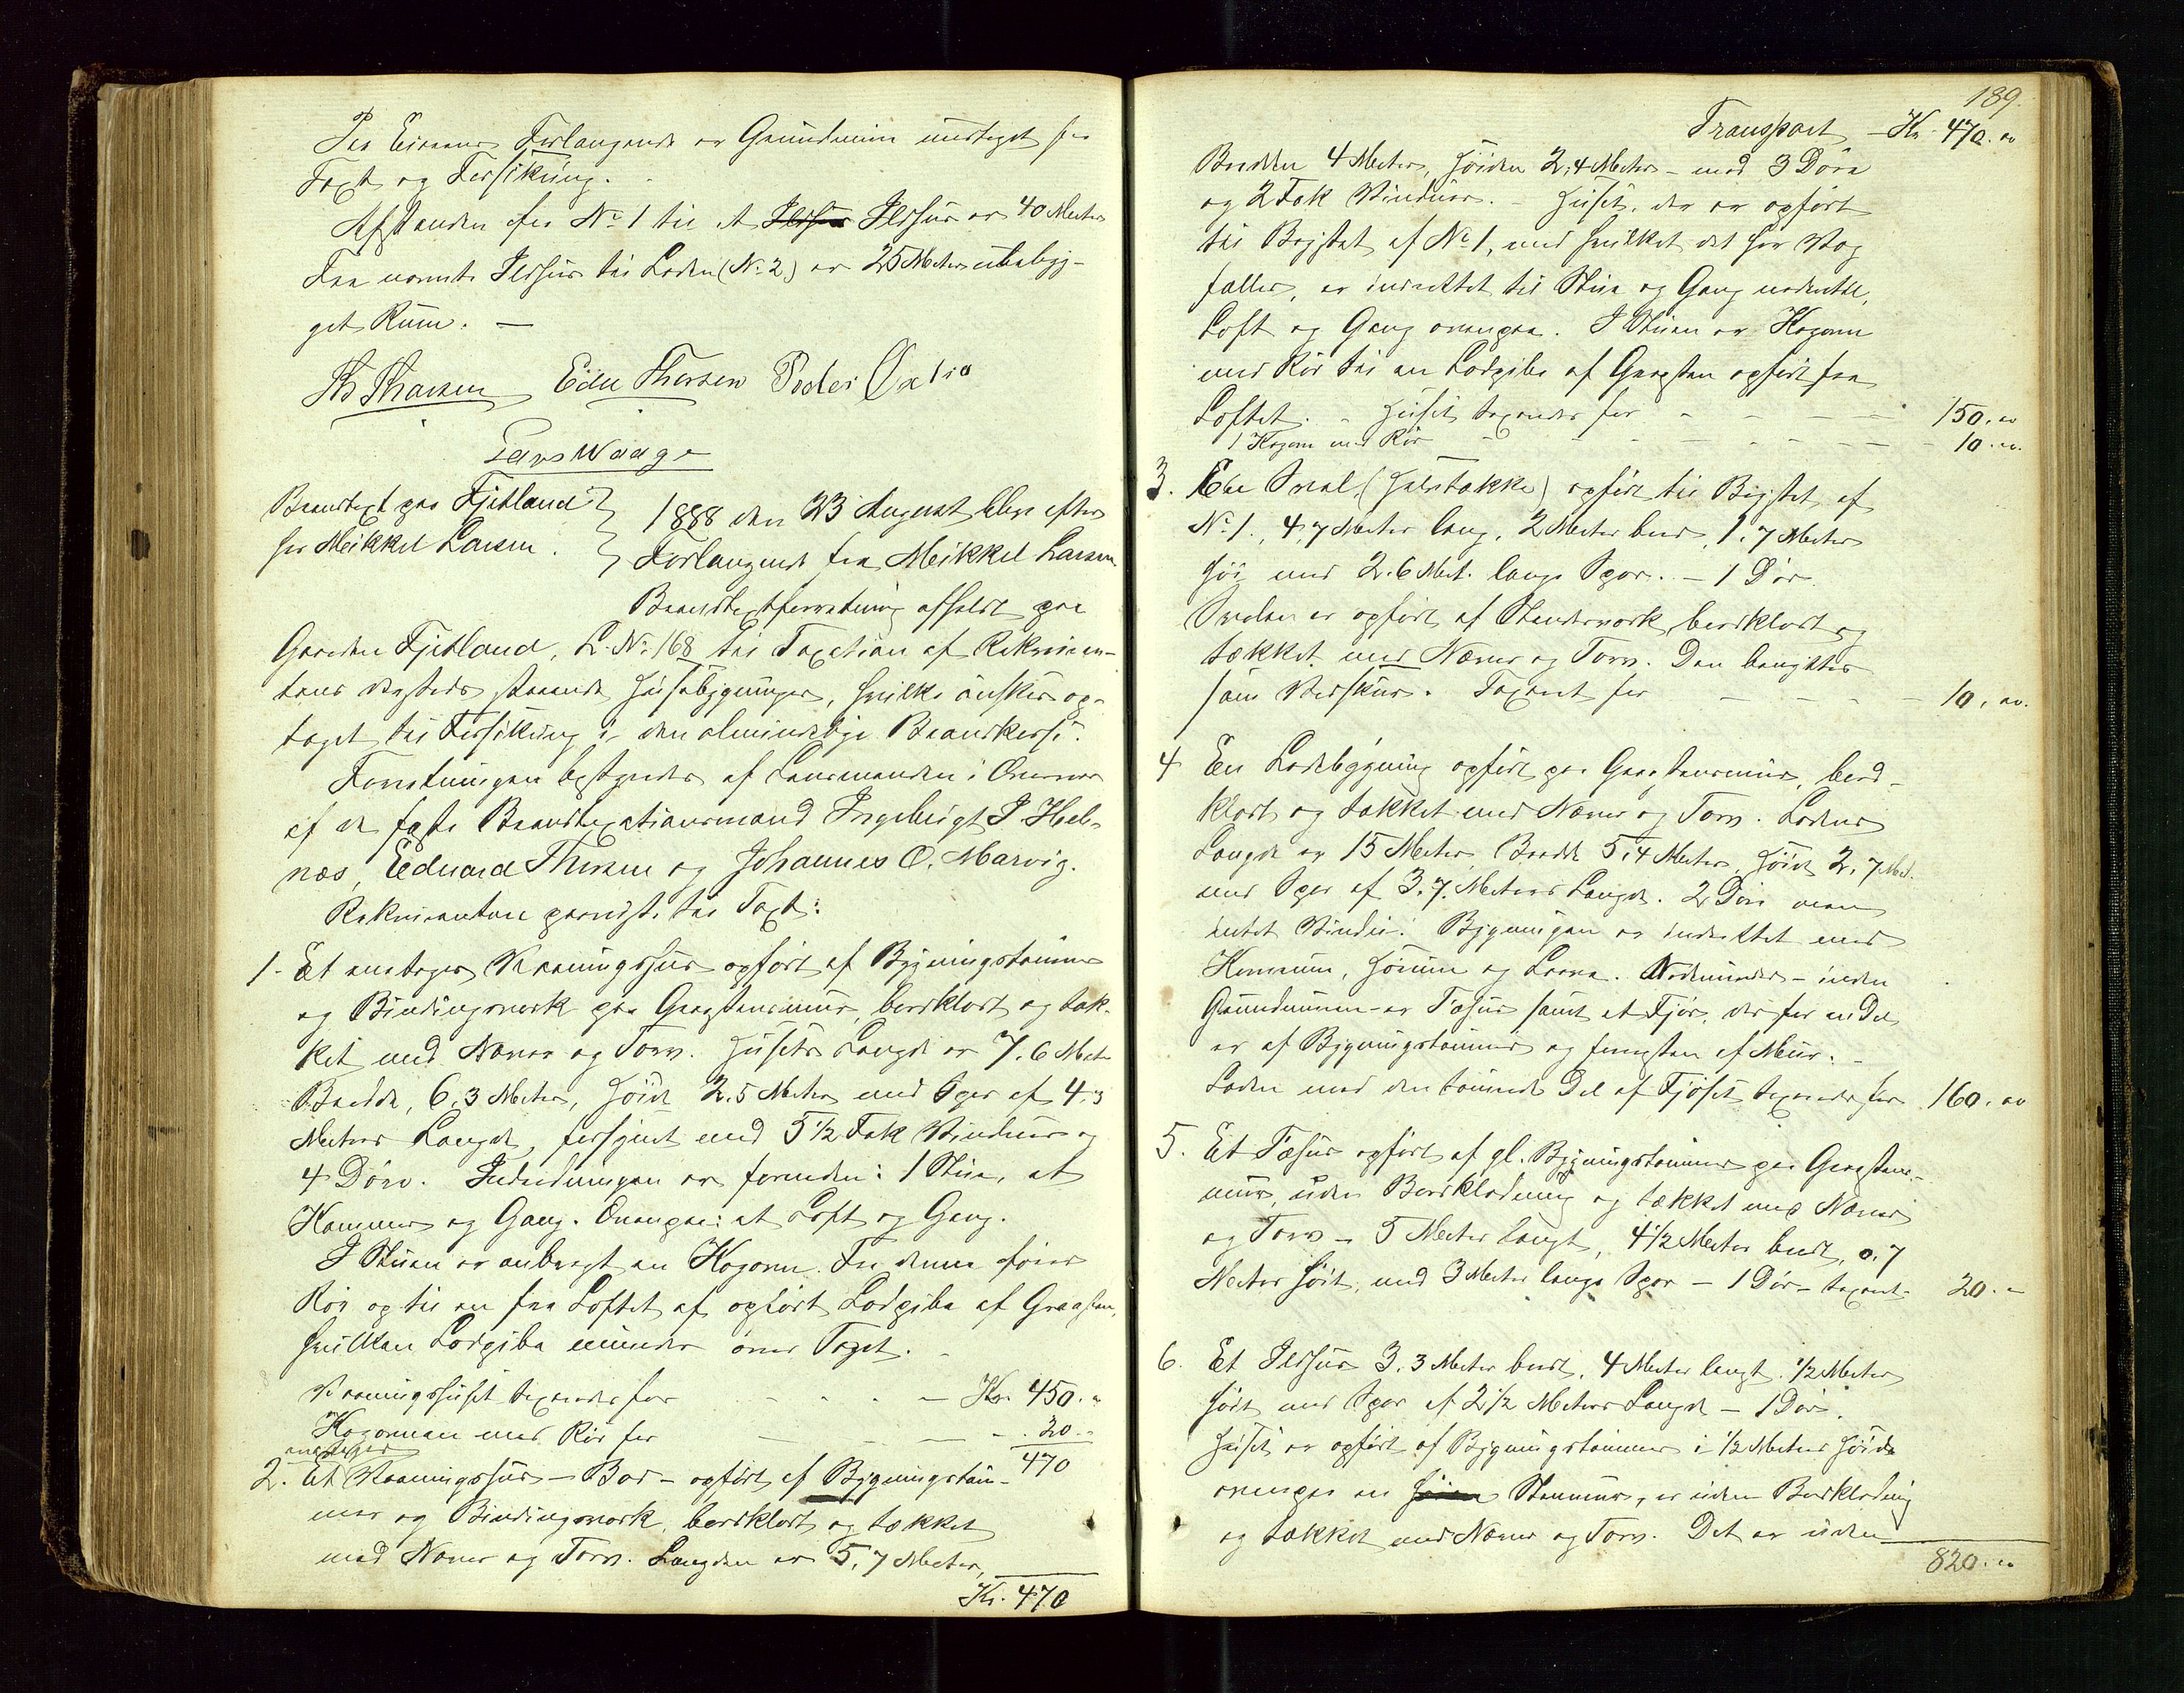 Paa Eierens Forlangende er Grundmuren undtaget fra
Taxt og Forsikring.
Afstanden fra No 1 til et Ildhus er 40 Meter
Fra nævnte Ildhus til Laden (No 2) er 25 Meter ubebyg-
get Rum. —
Edu Thorsen Peder
Lars Waage
Brandtaxt paa Fjetland
hos Meikkel Larsen.
1888 den 23 August blev efter
Forlangende fra Meikkel Larsen
Brandtaxtforretning afholdt paa
Gaarden Fjetland, L. No 168 til Taxation af Rekviren-
tens dersteds staaende Husebygninger, hvilke ønskes op-
taget til Forsikring i den almindelige Brandkasse.
Forretningen bestyredes af Lensmanden i Overvær
af de faste Brandtaxationsmænd Ingebrigt I Heb-
næs, Eduard Thorsen og Johannes O. Marvig.
Rekvirenten paaviste til Taxt:
1. Et enetages Vaaningshus opført af Bygningstømmer
og Bindingsverk paa Graastensmur, bordklædt og tæk-
ket med Næver og Torv. Husets Længde er 7.6 Meter
Bredde, 6.3 Meter, Høide 2.5 Meter med Sper af 4.3
Meters Længde, forsynet med 5 1/2 Fak Vinduer og
4 Døre. Indredningen er forneden: 1 Stue, et
Kammer og Gang. Ovenpaa: et Loft og Gang.
I Stuen er anbragt en Kogovn. Fra denne fører
Rør op til en fra Loftet af opført Lodpibe af Graasten,
hvilken Lodpibe munder over Taget.
Vaaningshuset taxeredes for - - - - Kr. 450. "
Kogovnen med Rør for — — — - 20. "
470
enetages
2. Et Vaaningshus - Bod - opført af Bygningstøm-
mer og Bindingsverk, bordklædt og tækket
med Næver og Torv. Længden er 5,7 Meter,
Kr. 470
189.
Transport - Kr. 470. "
Bredden 4 Meter, Høiden 2,4 Meter - med 3 Døre
og 2 Fak Vinduer. - Huset, der er opført
til Bagstat af No 1, med hvilket det har Væg
fælles, er indrettet til Stue og Gang nedentil,
Loft og Gang ovenpaa. I Stuen er Kogovn
med Rør til en Lodpibe af Graasten opført fra
Loftet. - Huset taxeredes for - - - - 150. "
1 Kogovn med Rør - - - - - - 10. "
3. En Sval (Halvtække) opført til Bagstat af
No 1., 4,7 Meter lang, 2 Meter bred, 1,7 Meter
høi med 2.6 Met. lange Sper. - 1 Dør.
Svalen er opført af Stenderverk, bordklædt og
tækket med Næver og Torv. Den benyttes
som Vedskur. Taxeret for - - - - 10. "
4 En Ladebygning opført paa Graastensmur, bord-
klædt og tækket med Næver og Torv. Ladens
Længde er 15 Meter Bredde 5,4 Meter, Høide 2,7 Met.
med Sper af 3.7. Meters Længde. 2 Døre men
intet Vindu. Bygningen er indrettet med
Kornrum, Hørum og Laave. Nedenunder - inden
Grundmuren - er Fæhus samt et Fjøs, der for en Del
er af Bygningstømmer og forresten af Mur. -
Laden med den tømrede Del af Fjøset taxeredes for 160. "
5. Et Fæhus opført af gl. Bygningstømmer paa Graastens-
mur, uden Bordklædning og tækket med Næver
og Torv - 5 Meter langt, 4 1/2 Meter bredt, 0.7
Meter høit, med 3 Meter lange Sper - 1 Dør - taxeret - 20. "
6. Et Ildhus 3.3 Meter bredt, 4 Meter langt. 1/2 Meter
høit med Sper af 2 1/2 Meters Længde - 1 Dør.
Huset er opført af Bygningstømmer i 1/2 Meters Høide
ovenpaa en Stenmur, er uden Bordklædning
og tækket med Næver og Torv. Det er uden
820. "